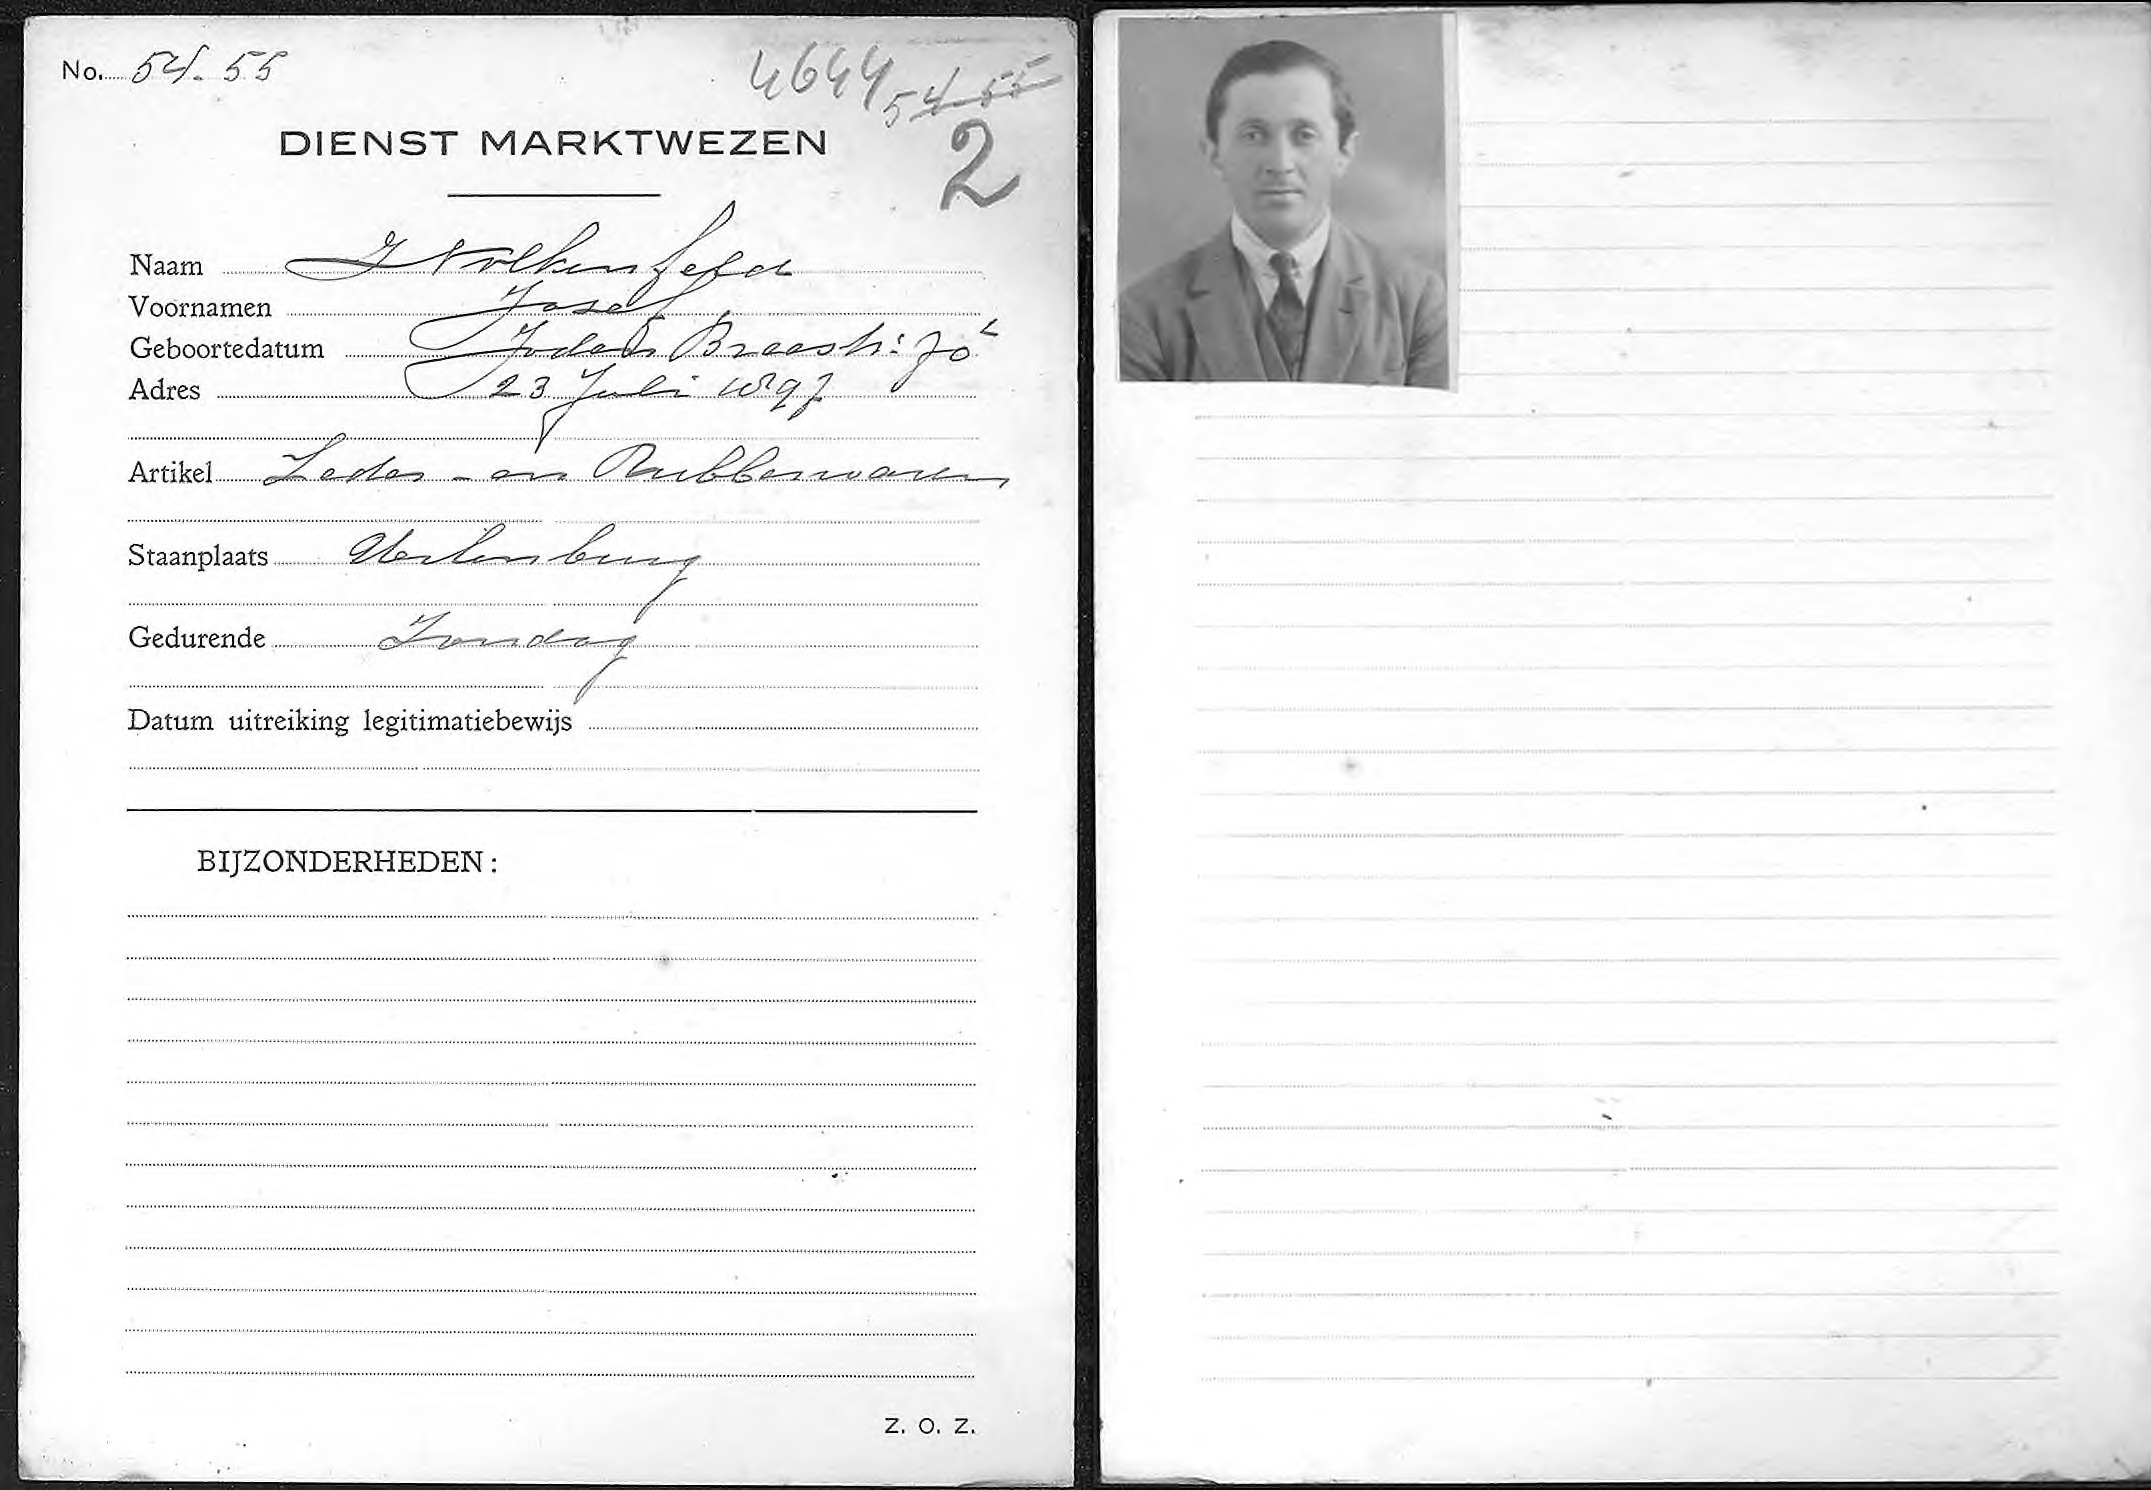 No. 54-55
4644 54-55
DIENST MARKTWEZEN
2
Naam Wolkenfeld
Voornamen Josef
Geboortedatum Joden Breestr: 70
Adres 23 Juli 1897
Artikel Leder- en Rubberwaren
Staanplaats Uilenburg
Gedurende Zondag
Datum uitreiking legitimatiebewijs
BIJZONDERHEDEN:
Z. O. Z.